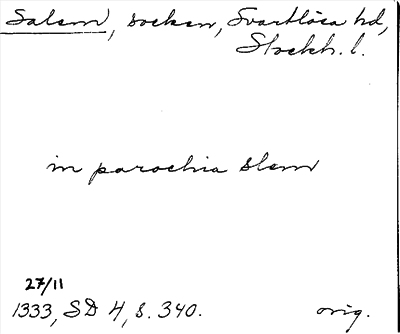 Salem, socken, Svartlösa hd,
Stockh. l.
in parochia Slem
27/11
1333, SD 4, s. 340.
orig.